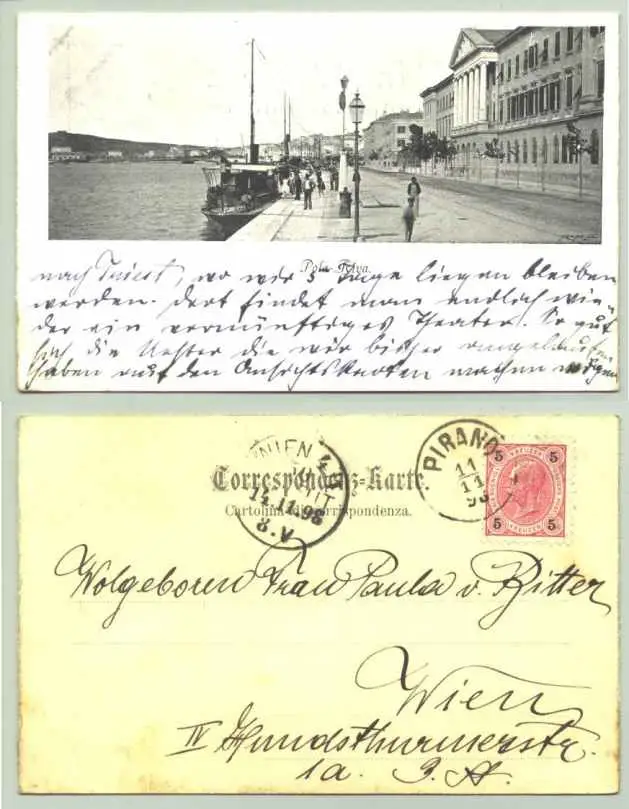 Pola-Riva.
nach Triest, wo wir 3 Tage liegen bleiben
werden. Dort findet man endlich wie-
der ein vernünftiges Theater. So gut
sich die Nester die wir bisher angelaufen
haben auf den Ansichtskarten machen mögen
WIEN 4/1
14.11.98
8.V
PIRANO
11
11
98
5 5
KREUZER
5 5
Correspondenz-Karte.
Cartolina di corrispondenza.
Wolgeboren Frau Paula v. Ritter
Wien
IV Hundsthurmerstr.
1a.